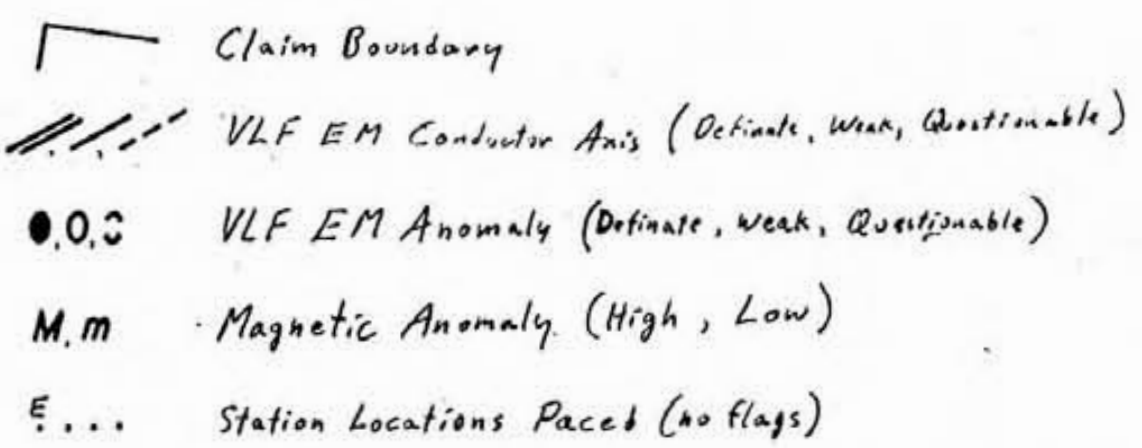 Claim Boundary
VLF EM Conductor Axis (Definate, Weak, Questionable)
VLF EM Anomaly (Definate, Weak, Questionable)
M, m Magnetic Anomaly (High, Low)
E . . . . Station Locations Paced (no flags)